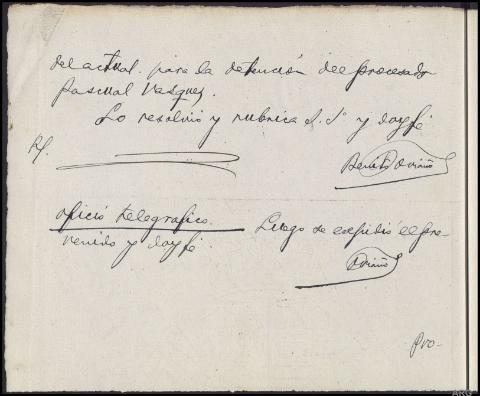 del actual para la detención del procesado
Pascual Vasquez.
Lo resolvió y rubrica S.Sª y doy fé
R/.
Benito Oviaño
Oficio telegrafico. Luego se expidió el pre-
venido y doy fé.
Oviaño
Pro-
ARG